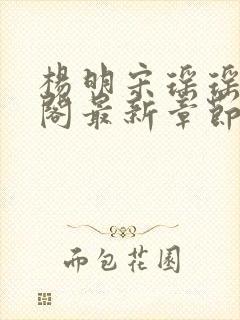 杨明宋瑶瑶
阁最新章节
而包花園